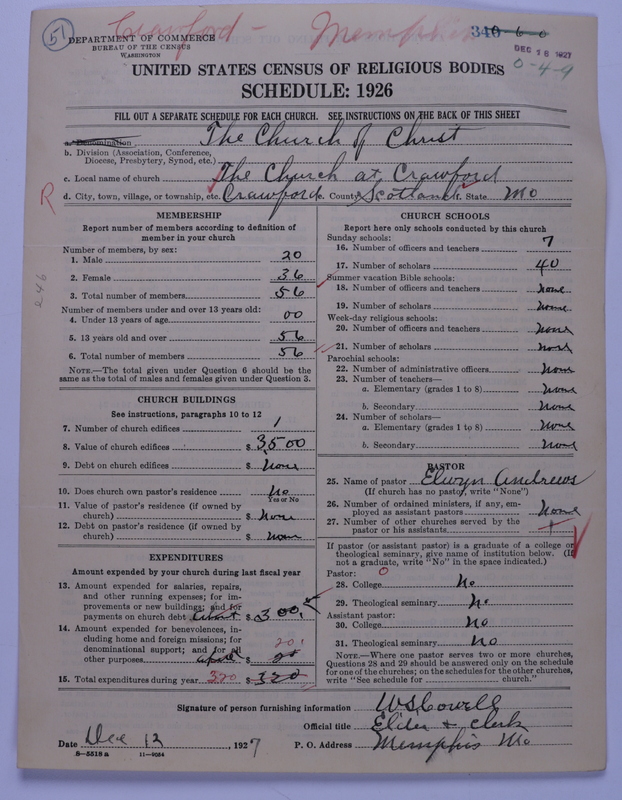 51 Crawford - Memphis 340-6-0
DEPARTMENT OF COMMERCE
BUREAU OF THE CENSUS
WASHINGTON
DEC 16 1927
0-4-9
UNITED STATES CENSUS OF RELIGIOUS BODIES
SCHEDULE: 1926
FILL OUT A SEPARATE SCHEDULE FOR EACH CHURCH. SEE INSTRUCTIONS ON THE BACK OF THIS SHEET
a. Denomination The Church of Christ
b. Division (Association, Conference,
Diocese, Presbytery, Synod, etc.)
c. Local name of church The Church at Crawford
R d. City, town, village, or township, etc. Crawford e. County Scotland f. State Mo
246
MEMBERSHIP
Report number of members according to definition of
member in your church
Number of members, by sex:
1. Male 20
2. Female 36
3. Total number of members 56
Number of members under and over 13 years old:
4. Under 13 years of age 00
5. 13 years old and over 56
6. Total number of members 56
NOTE.—The total given under Question 6 should be the
same as the total of males and females given under Question 3.
CHURCH BUILDINGS
See instructions, paragraphs 10 to 12
7. Number of church edifices 1
8. Value of church edifices $ 3500
9. Debt on church edifices $ None
10. Does church own pastor's residence No
Yes or No
11. Value of pastor's residence (if owned by
church) $ None
12. Debt on pastor's residence (if owned by
church) $ None
EXPENDITURES
Amount expended by your church during last fiscal year
13. Amount expended for salaries, repairs,
and other running expenses; for im-
provements or new buildings; and for
payments on church debt about $ 300
14. Amount expended for benevolences, in-
cluding home and foreign missions; for
denominational support; and for all 20
other purposes $ 20
15. Total expenditures during year 320 $ 320
CHURCH SCHOOLS
Report here only schools conducted by this church
Sunday schools:
16. Number of officers and teachers 7
17. Number of scholars 40
Summer vacation Bible schools:
18. Number of officers and teachers None
19. Number of scholars None
Week-day religious schools:
20. Number of officers and teachers None
21. Number of scholars None
Parochial schools:
22. Number of administrative officers None
23. Number of teachers—
a. Elementary (grades 1 to 8) None
b. Secondary None
24. Number of scholars—
a. Elementary (grades 1 to 8) None
b. Secondary None
PASTOR
25. Name of pastor Elwyn Andrews
(If church has no pastor, write "None")
26. Number of ordained ministers, if any, em-
ployed as assistant pastors None
27. Number of other churches served by the
pastor or his assistants
If pastor (or assistant pastor) is a graduate of a college or
theological seminary, give name of institution below. (If
not a graduate, write "No" in the space indicated.)
Pastor: 0
28. College No
29. Theological seminary No
Assistant pastor:
30. College No
31. Theological seminary No
NOTE.—Where one pastor serves two or more churches,
Questions 28 and 29 should be answered only on the schedule
for one of the churches; on the schedules for the other churches,
write "See schedule for church."
Signature of person furnishing information W S Cowell
Official title Elder & Clerk
Date Dec 13, 1927 P. O. Address Memphis Mo
8-5518a 11-9084